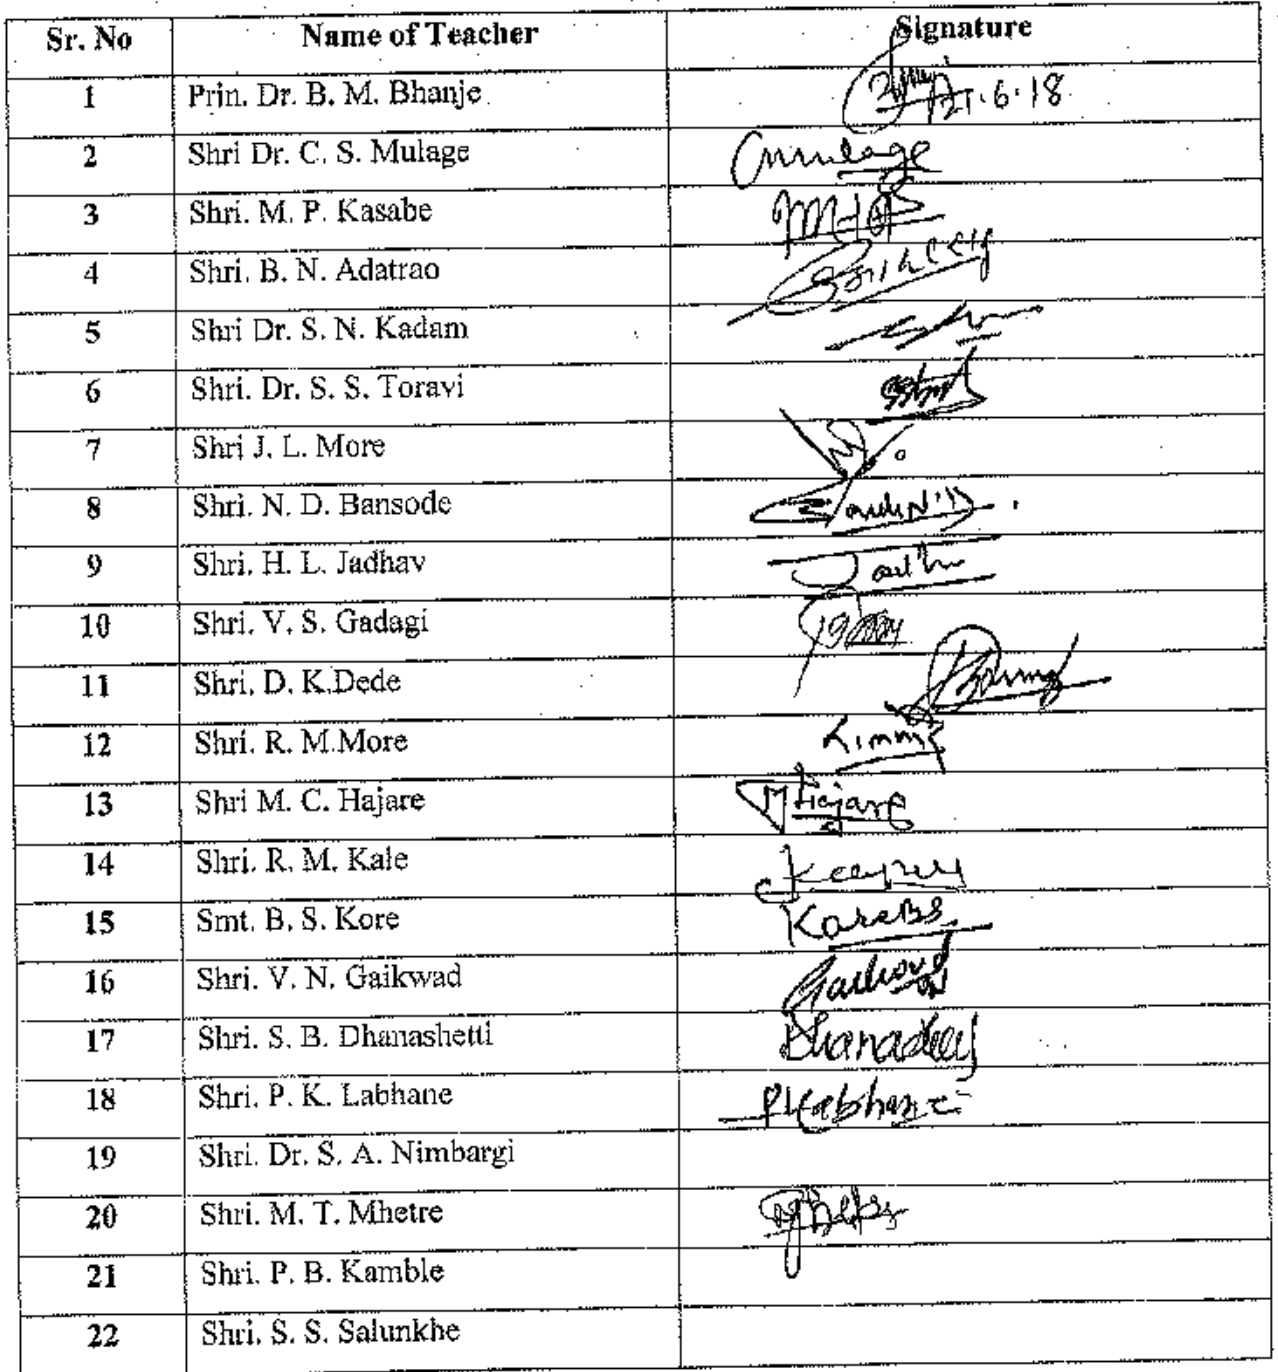 Sr. No Name of Teacher Signature
1 Prin. Dr. B. M. Bhanje 21.6.18
2 Shri Dr. C. S. Mulage Cmulage
3 Shri. M. P. Kasabe
4 Shri. B. N. Adatrao
5 Shri Dr. S. N. Kadam
6 Shri. Dr. S. S. Toravi
7 Shri J. L. More
8 Shri. N. D. Bansode
9 Shri. H. L. Jadhav
10 Shri. V. S. Gadagi
11 Shri. D. K.Dede
12 Shri. R. M.More
13 Shri M. C. Hajare MHajare
14 Shri. R. M. Kale
15 Smt. B. S. Kore KoreBS
16 Shri. V. N. Gaikwad
17 Shri. S. B. Dhanashetti
18 Shri. P. K. Labhane PKLabhane
19 Shri. Dr. S. A. Nimbargi
20 Shri. M. T. Mhetre
21 Shri. P. B. Kamble
22 Shri. S. S. Salunkhe